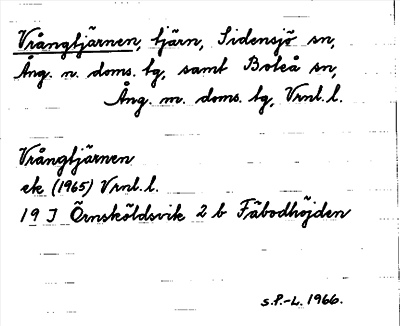 Vrångtjärnen, tjärn, Sidensjö sn,
Ång. n. doms. tg, samt Boteå sn,
Ång. m. doms. tg, Vrnl. l.
Vrångtjärnen
ek (1965) Vrnl. l.
19 J Örnsköldsvik 2 b Fäbodhöjden
S.P.-L. 1966.